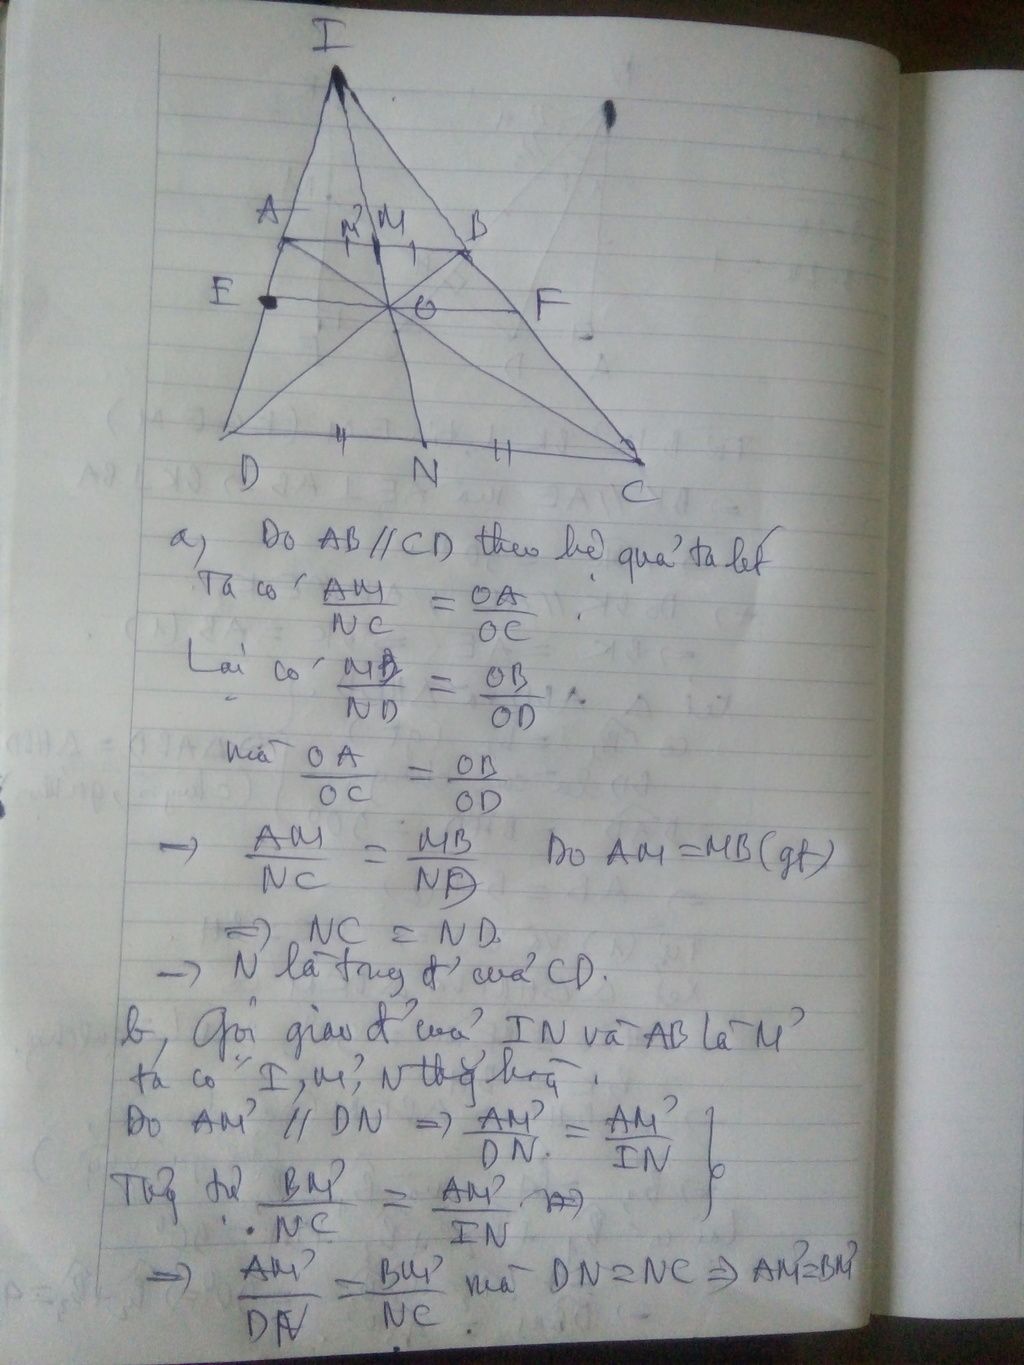 I
A M' M B
E O F
D N C
a, Do AB // CD theo hệ quả ta lét
Ta có AM/NC = OA/OC .
Lại có MB/ND = OB/OD .
mà OA/OC = OB/OD
→ AM/NC = MB/ND Do AM = MB (gt)
=> NC = ND.
→ N là trung đ' của CD.
b, Gọi giao đ' của IN và AB là M'
ta có I, M', N thẳng hàng.
Do AM' // DN => AM'/DN = AM'/IN
Tương tự BM'/NC = AM'/IN =>
=> AM'/DN = BM'/NC mà DN = NC => AM' = BM'